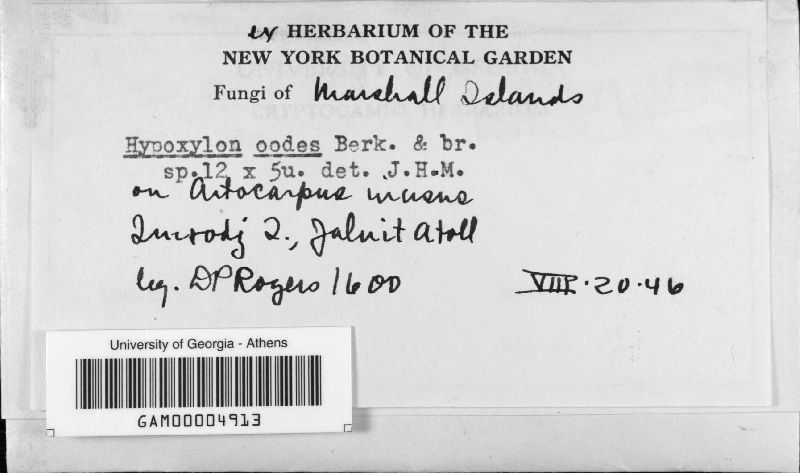 ex HERBARIUM OF THE
NEW YORK BOTANICAL GARDEN
Fungi of Marshall Islands
Hypoxylon oodes Berk. & br.
sp.12 x 5u. det. J.H.M.
on Artocarpus incisus
Imrodj I., Jaluit Atoll
leg. DP Rogers 1600 VIII.20.46
University of Georgia - Athens
GAM00004913